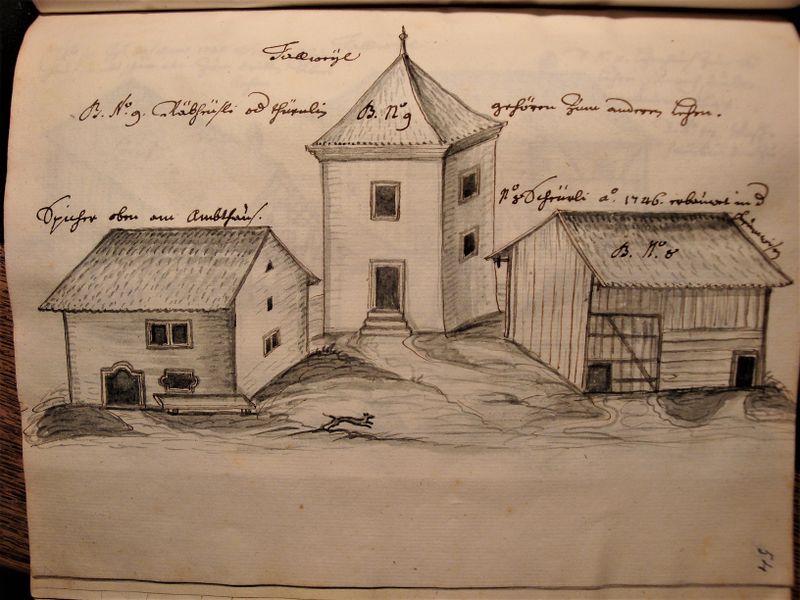 B. No. 9. Räbheüsli od thürnlin
B. No 9
gehören zum anderen Lehen.
Spicher oben am Ambthaus.
No 8 Scheürli ao. 1746. erbauwt in d
B. No. 8
54